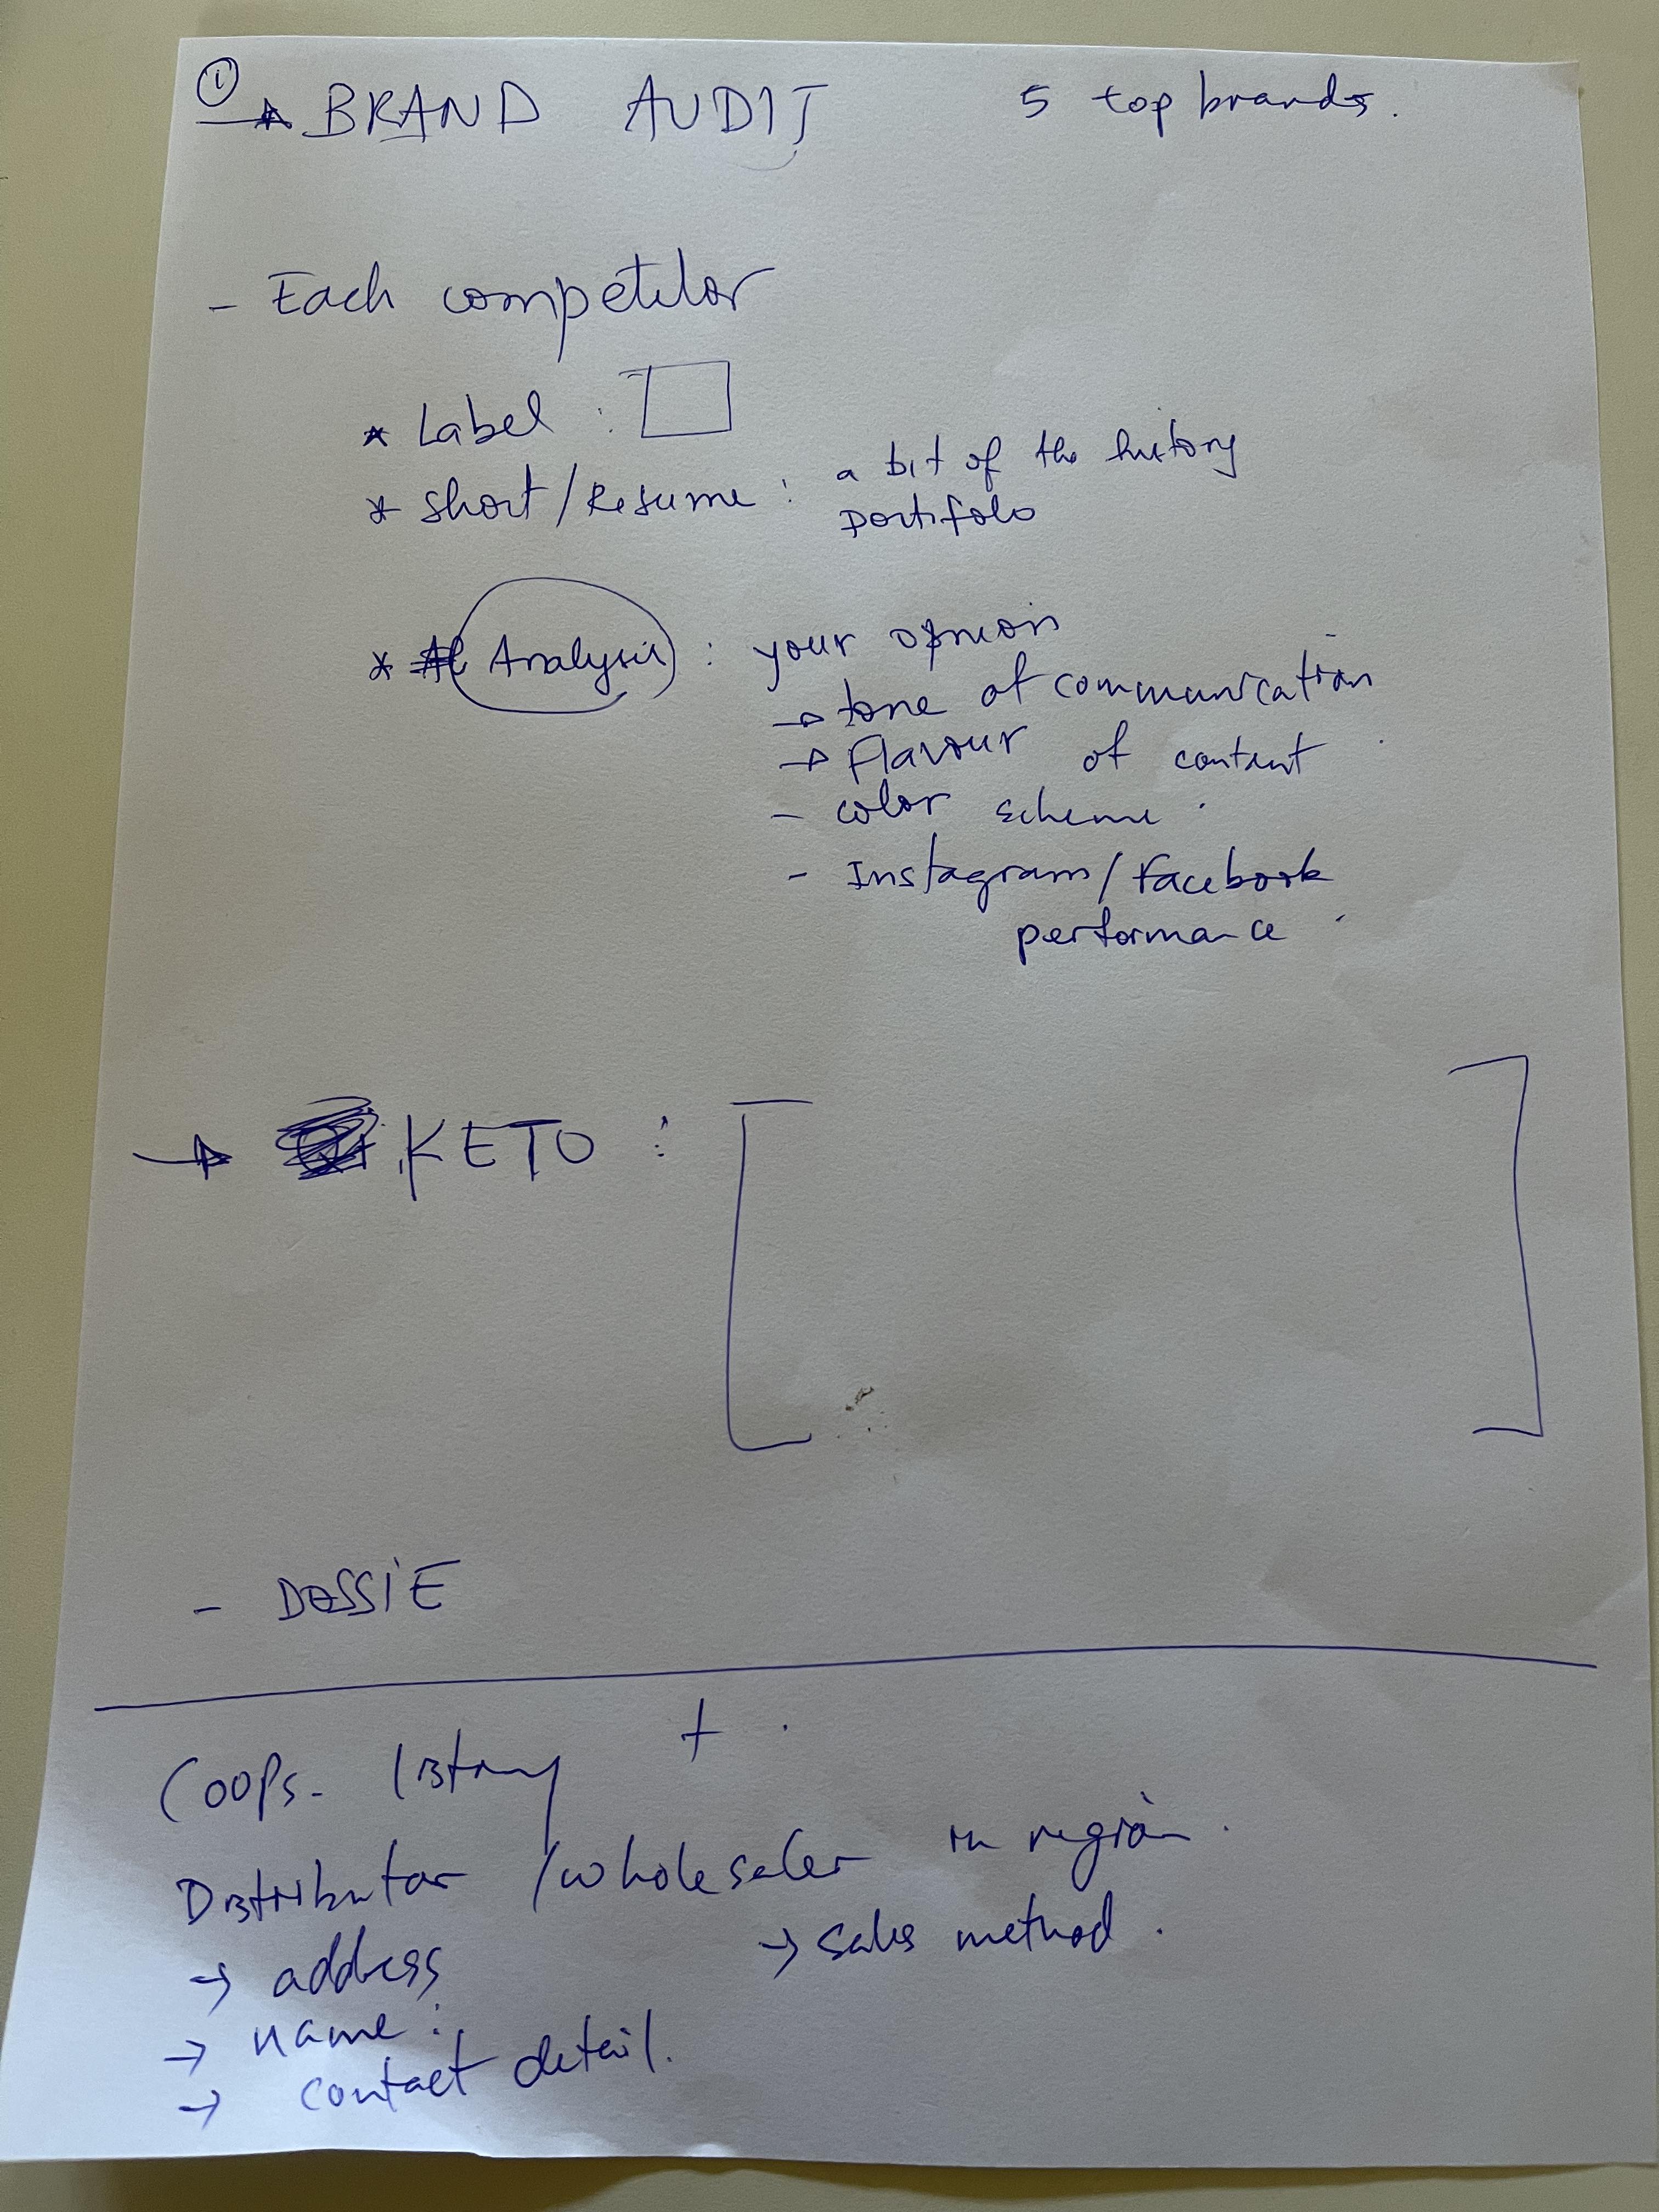 ① → BRAND AUDIT 5 top brands.
- Each competitor
* Label :
* Short/Resume : a bit of the history
portifolo
* Analysis : your opnion
→ tone of communication
→ Flavour of content
- color scheme
- Instagram/Facebook
performance
→ KETO :
- DOSSIE
+
Coops. listing
Distributor /wholesaler in region.
→ address → sales method.
→ name :
→ contact detail.